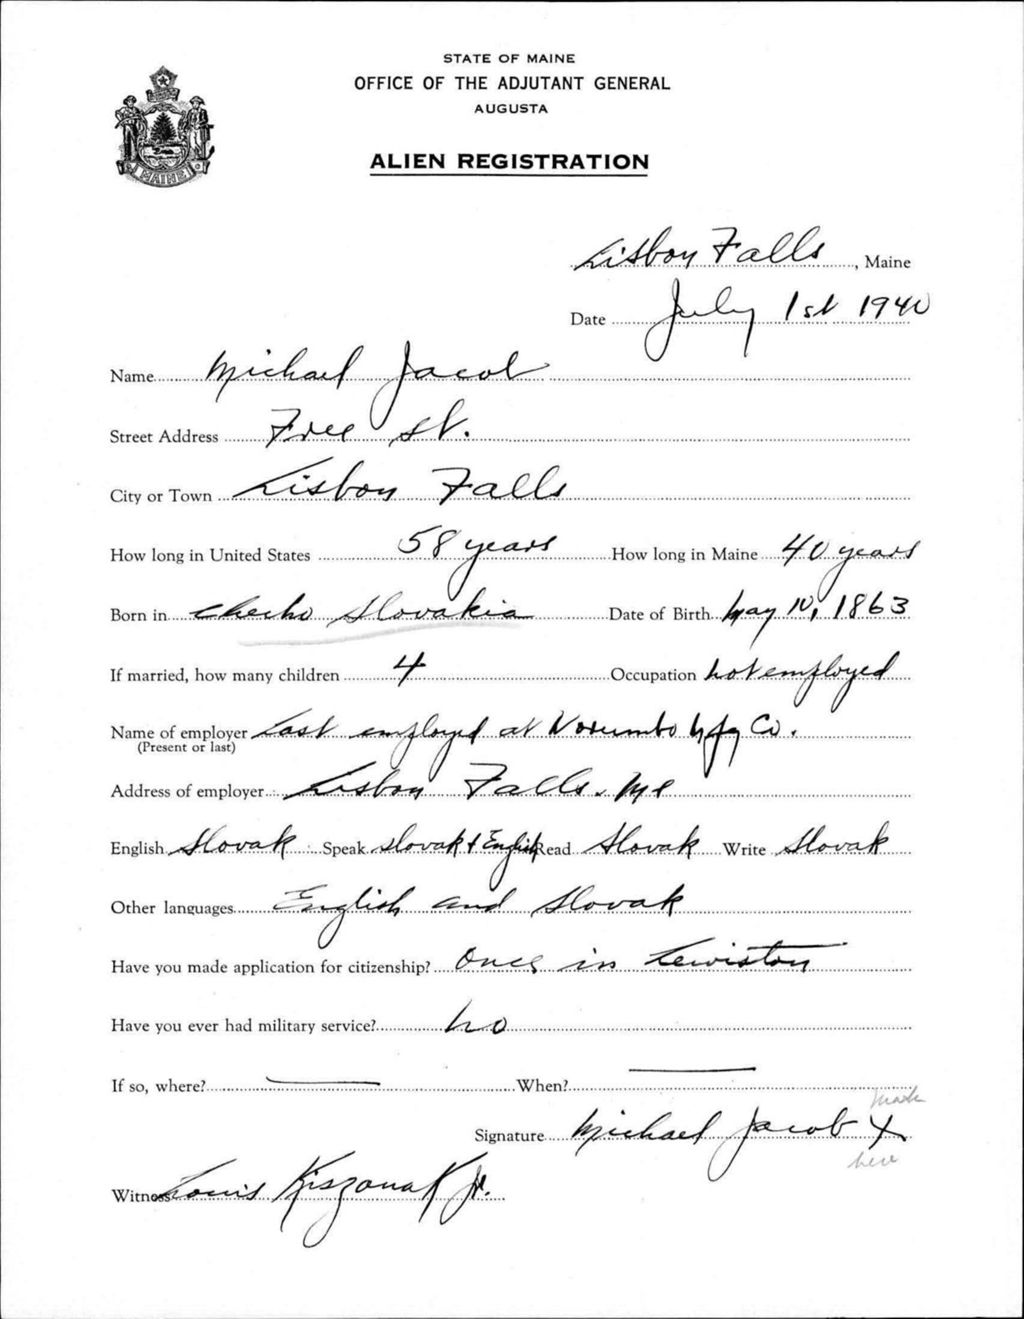 STATE OF MAINE
OFFICE OF THE ADJUTANT GENERAL
AUGUSTA
ALIEN REGISTRATION
MAINE
Lisbon Falls, Maine
Date July 1st 1940
Name Michael Jacob
Street Address Free St.
City or Town Lisbon Falls
How long in United States 58 years How long in Maine 40 years
Born in Checho Slovakia Date of Birth May 10, 1863
If married, how many children 4 Occupation not employed
Name of employer Last employed at Worumbo Mfg Co.
(Present or last)
Address of employer Lisbon Falls. Me
English Slovak Speak Slovak & English Read Slovak Write Slovak
Other languages English and Slovak
Have you made application for citizenship? Once in Lewiston
Have you ever had military service? no
If so, where? — When? —
mark
Signature Michael Jacob X
here
Witness Louis Kiszonak Jr.